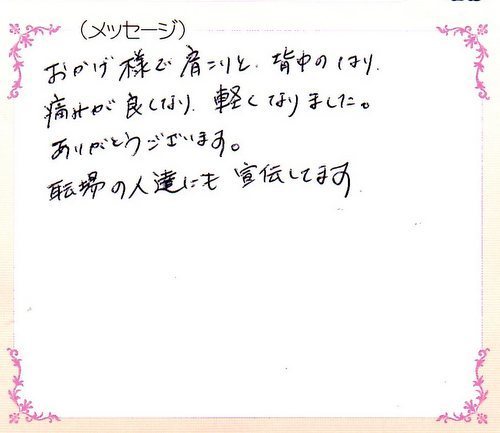 (メッセージ)
おかげ様で肩こりと、背中のはり、
痛みが良くなり、軽くなりました。
ありがとうございます。
職場の人達にも宣伝してます